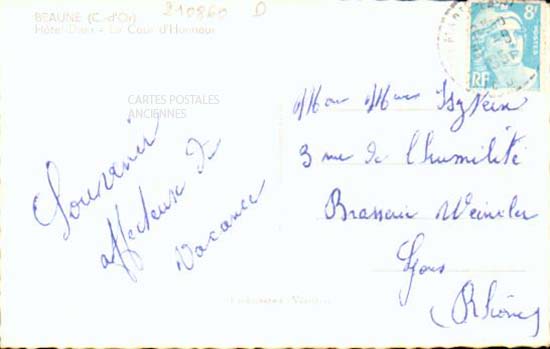 BEAUNE (C.-d'Or)
Hôtel-Dieu - La Cour d'Honneur
210860 D
CARTES POSTALES
ANCIENNES
8F
POSTES
RF
Souvenir
affectueux de
vacance
3 rue de l'humilité
Brasserie
Lyon
(Rhône)